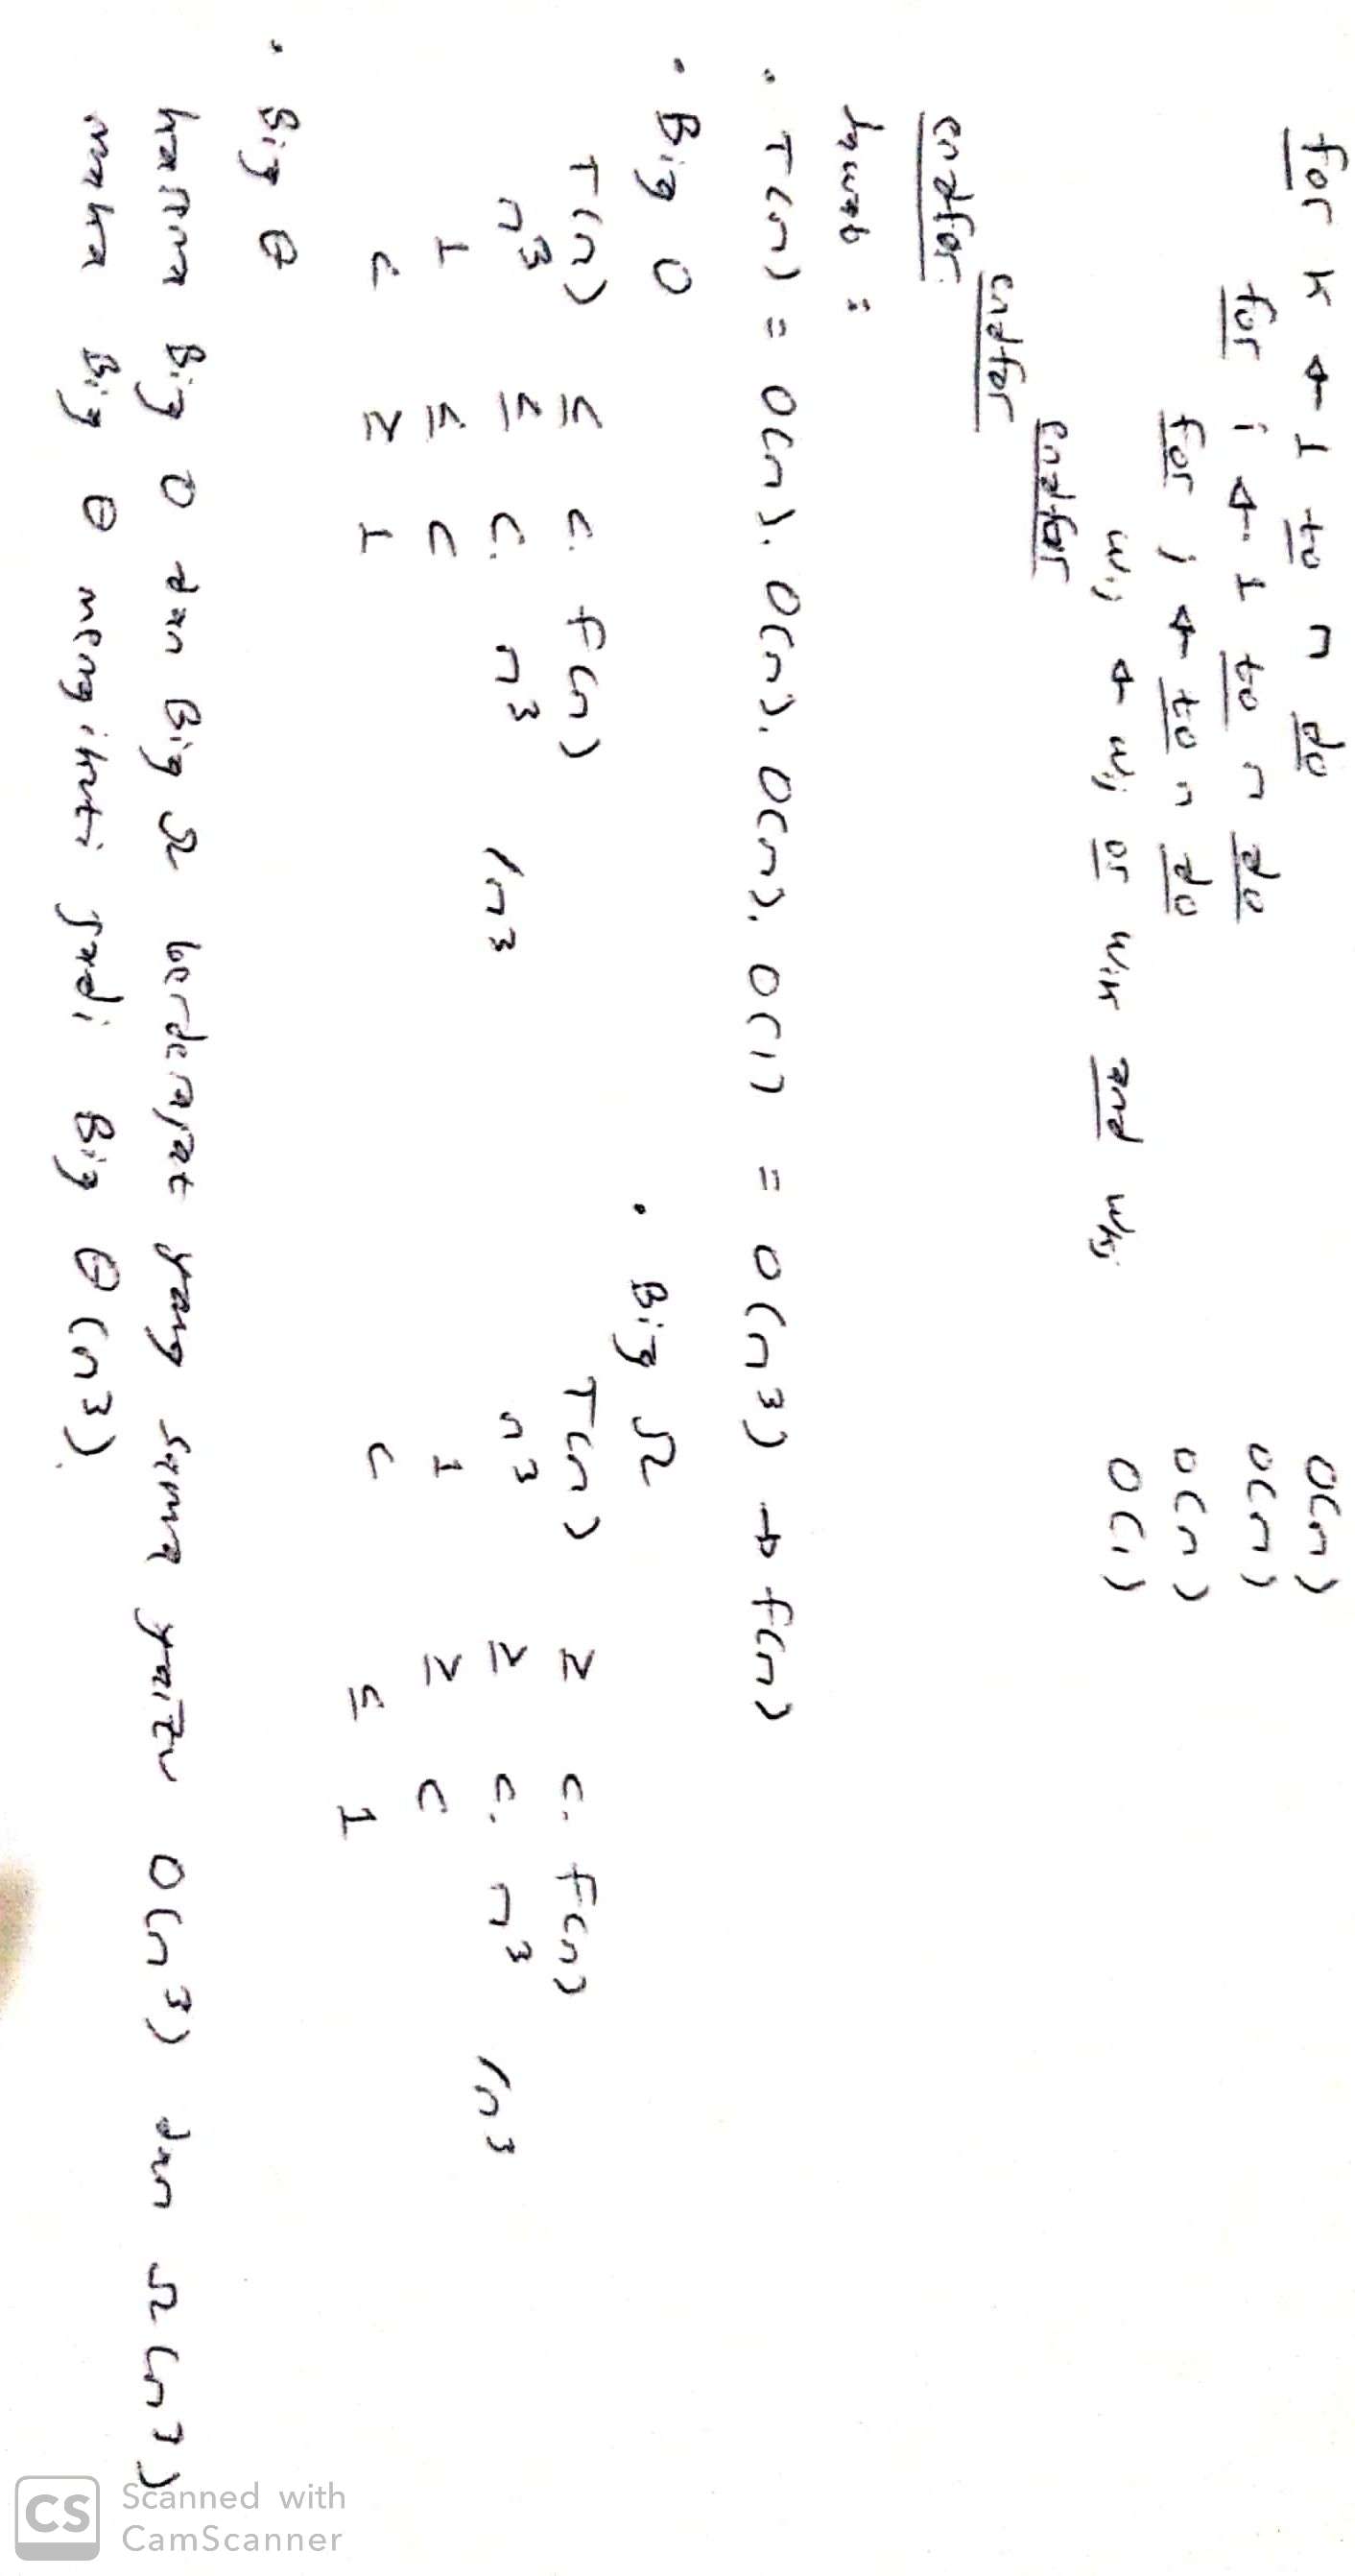 for k ← 1 to n do O(n)
for i ← 1 to n do O(n)
for j ← to n do O(n)
wij ← wij or wik and wkj O(1)
endfor
endfor
endfor
Jawab :
• T(n) = O(n). O(n). O(n). O(1) = O(n³) → f(n)
• Big O
T(n) ≤ c. f(n)
n³ ≤ c. n³ /n³
1 ≤ c
c ≥ 1
• Big Ω
T(n) ≥ c. f(n)
n³ ≥ c. n³ /n³
1 ≥ c
c ≤ 1
• Big θ
karena Big O dan Big Ω berderajat yang sama yaitu O(n³) dan Ω(n³)
maka Big θ mengikuti jadi Big θ(n³).
CS Scanned with
CamScanner